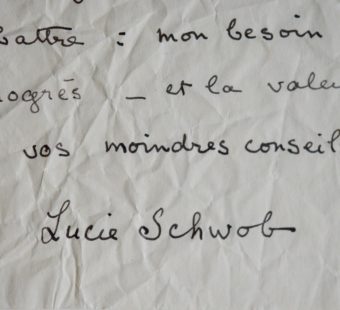 battre : mon besoin
progrès – et la valeu
vos moindres conseil
Lucie Schwob